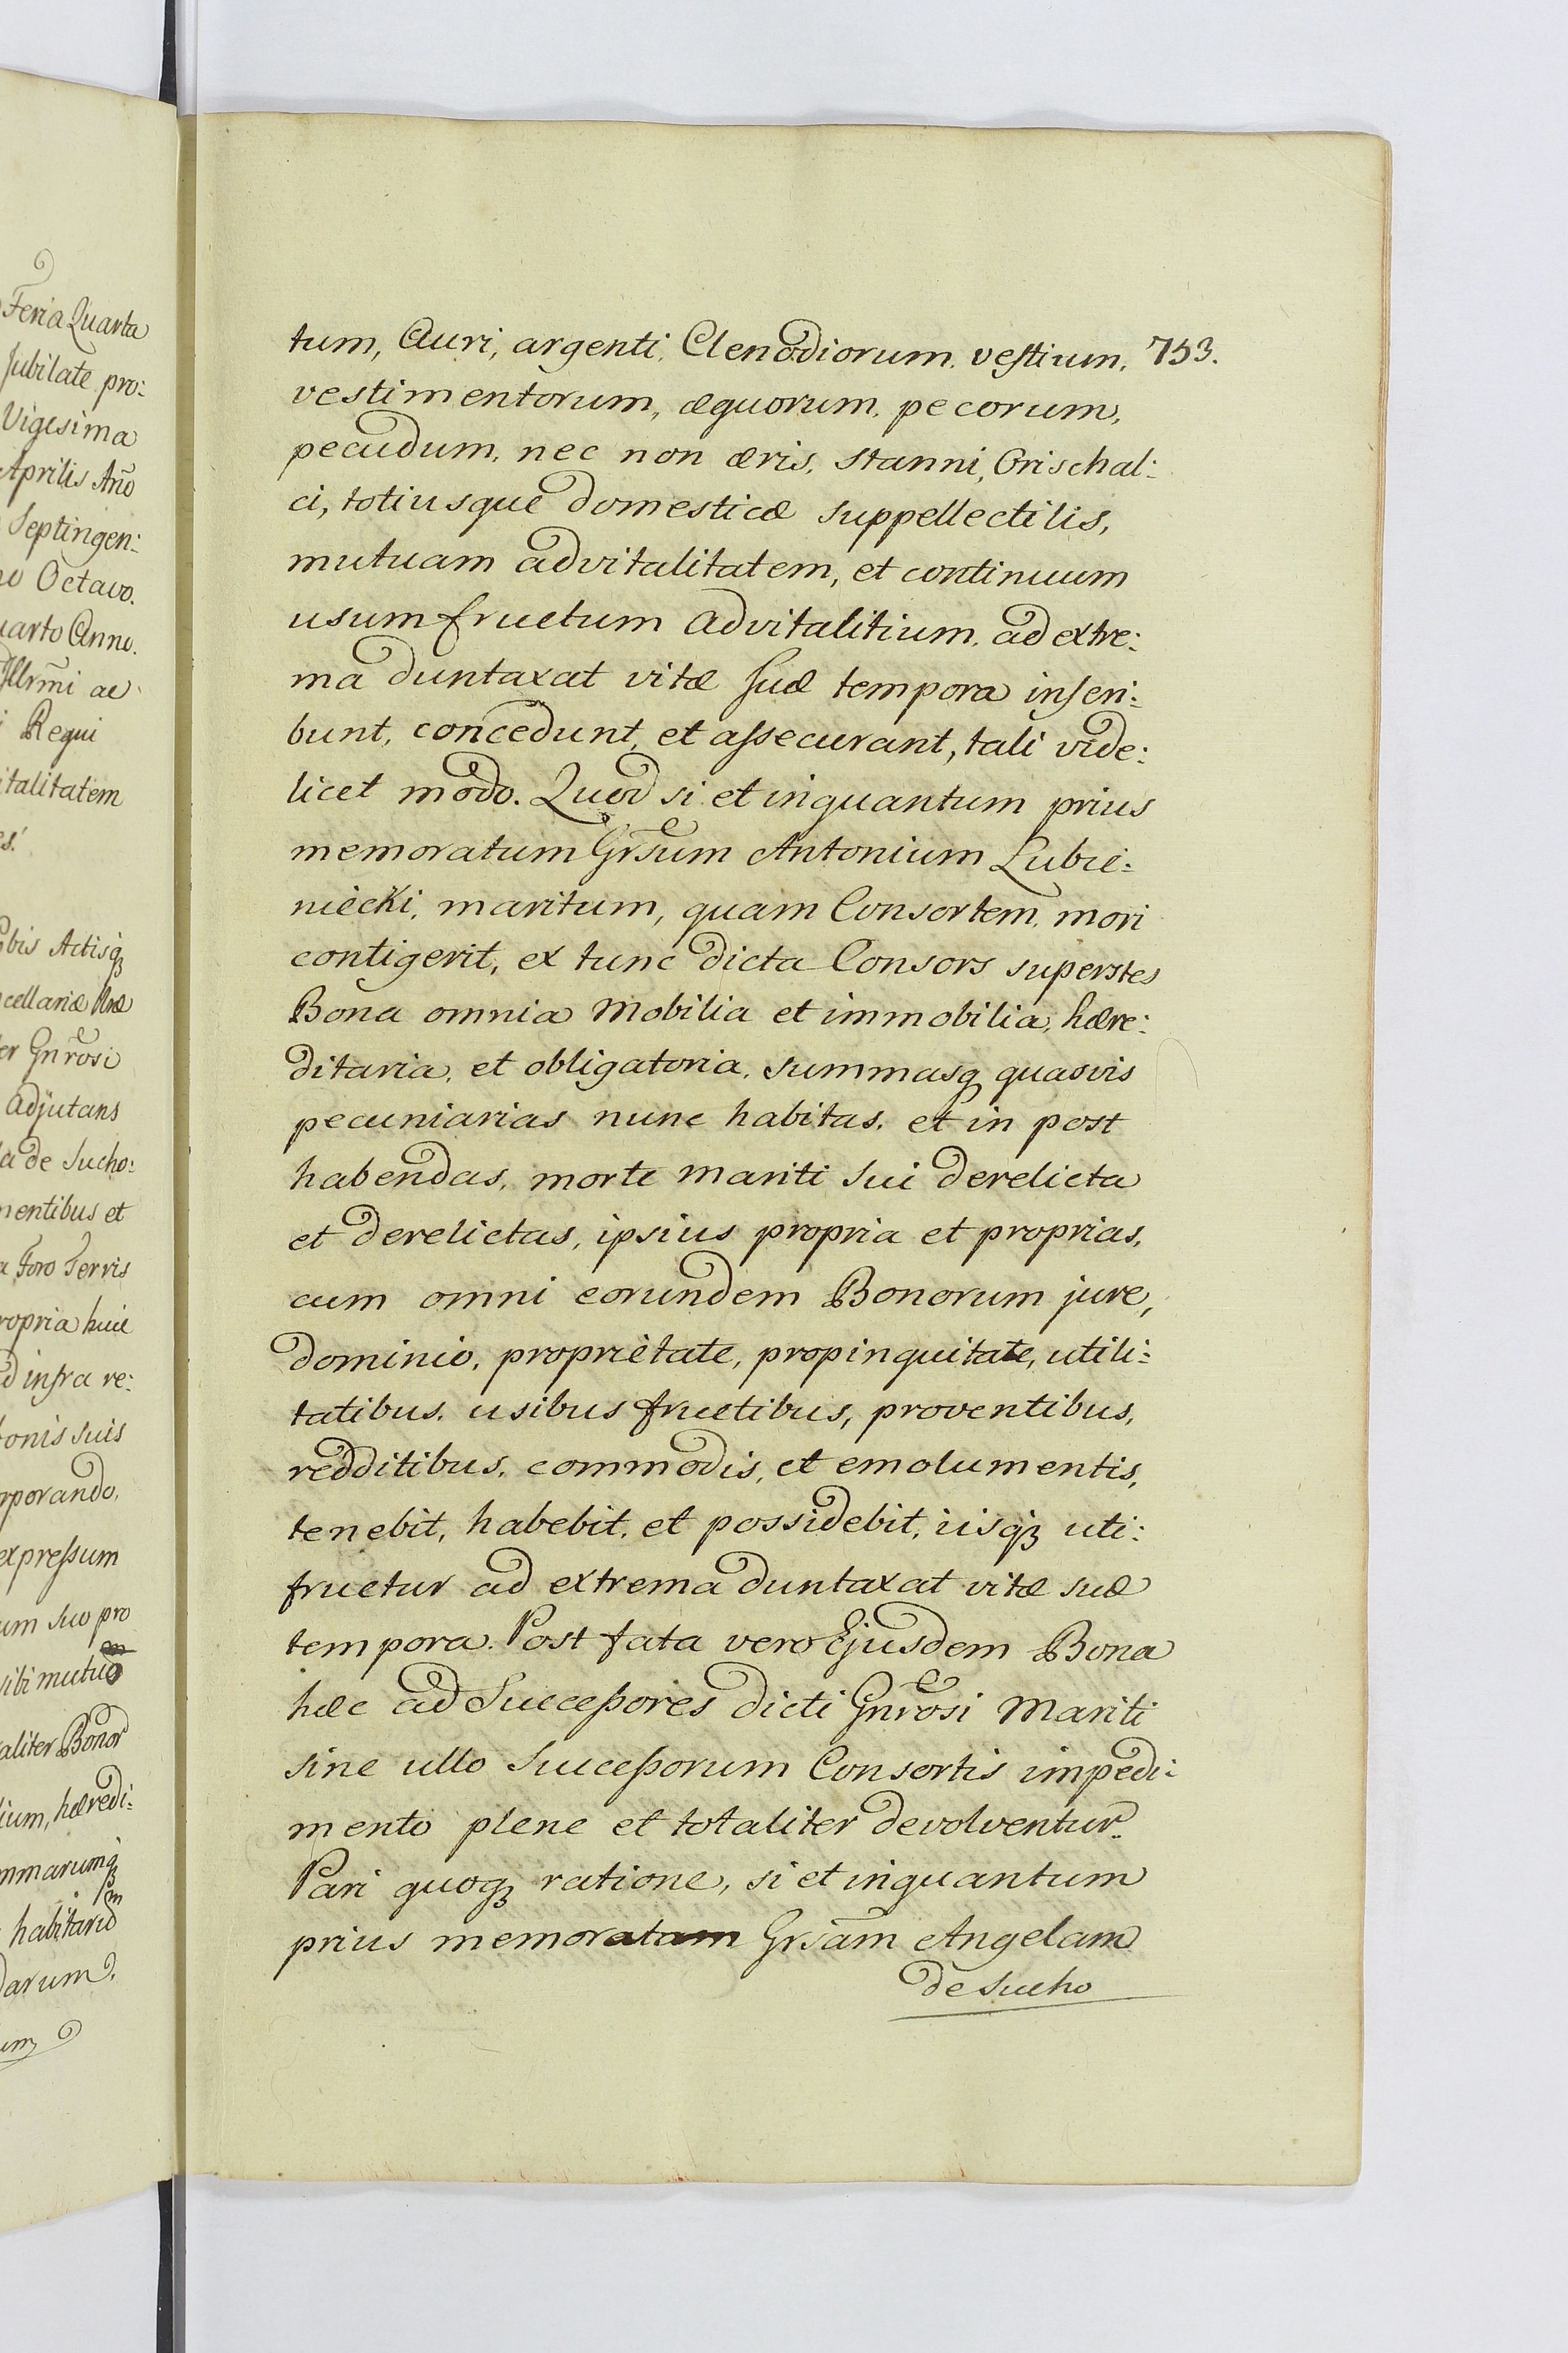 Feria Quarta
Jubilate pro:
Vigesima
Aprilis Ano
Septingen:
Octavo.
uarto Anno.
Illrmi ac
Regui
italitatem
es.
Actisq
cellariæ Rnæ
er Gnrosi
Adjutans
la de Sucho:
mentibus et
Foro Terris
propria huic
d infra re:
tonis suis
rporando,
expressum
um suo pro
sibi mutuo
aliter Bonor
lium, hæredi:
mmarumq
habitaru
darum,
um
tum, Auri, argenti, Clenodiorum, vestium, 753.
vestimentorum, æquorum, pecorum,
pecudum, nec non æris, stanni, Orischal:
ci, totiusque domesticæ suppellectilis,
mutuam advitalitatem, et continuum
usumfructum advitalitium, ad extre:
ma duntaxat vitæ suæ tempora inseri:
bunt, concedunt, et assecurant, tali vide:
licet modo. Quod si et inquantum prius
memoratum Grsum Antonium Lubie:
niecki, maritum, quam Consortem, mori
contigerit, ex tunc dicta Consors superstes
Bona omnia Mobilia et immobilia, hære:
ditaria, et obligatoria, summasq quasvis
pecuniarias nunc habitas, et in post
habendas, morte mariti sui derelicta
et derelictas, ipsius propria et proprias,
cum omni eorundem Bonorum jure,
dominio, proprietate, propinquitate, utili:
tatibus, usibus fructibus, proventibus,
redditibus, commodis, et emolumentis,
tenebit, habebit, et possidebit, iisq uti:
fructur ad extrema duntaxat vitæ suæ
tempora. Post fata vero Ejusdem Bona
hæc ad Successores dicti Gnrosi Mariti
sine ullo Successorum Consortis impedi:
mento plene et totaliter devolventur.
Pari quoq ratione, si et inquantum
prius memoratam Grsam Angelam
de Sucho